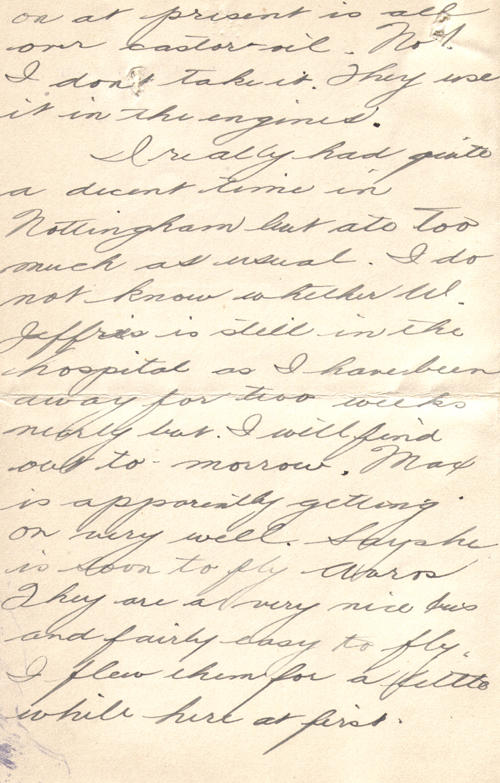 on at present is all
over castor-oil. No!
I don't take it. They use
it in the engines.
I really had quite
a decent time in
Nottingham but ate too
much as usual. I do
not know whether W.
Jeffries is still in the
hospital as I have been
away for two weeks
nearly but. I will find
out to-morrow. Max
is apparently getting
on very well. Says he
is soon to fly Avros
They are a very nice bus
and fairly easy to fly.
I flew them for a little
while here at first.